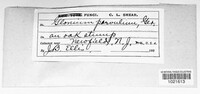 FUNGI. C. L. SHEAR.
Glonium parvulum, Ger.
on oak stump
Newfield, N.J.
J.B. Ellis